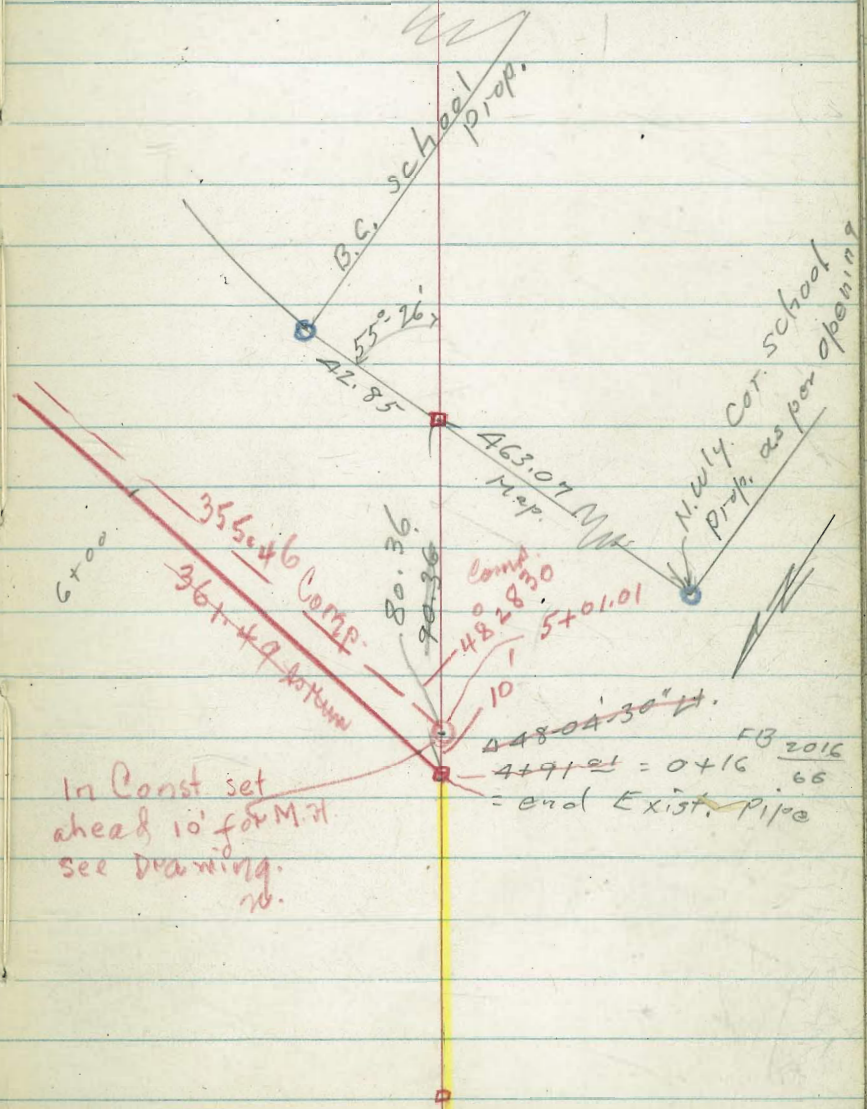 B.C. school
prop.
55°-26'
42.85
463.07
Map.
N.Wly. Cor. School
Prop. as per opening
6+00
355.46 Comp.
361.49
80.36
90.36
Comp.
48 28 30
5+01.01
10'
Δ48-04'-30" Lt.
4+91.01 = 0+16
FB 2016
66
= end Exist. pipe
In Const set
ahead 10' for M.H.
see Drawing.